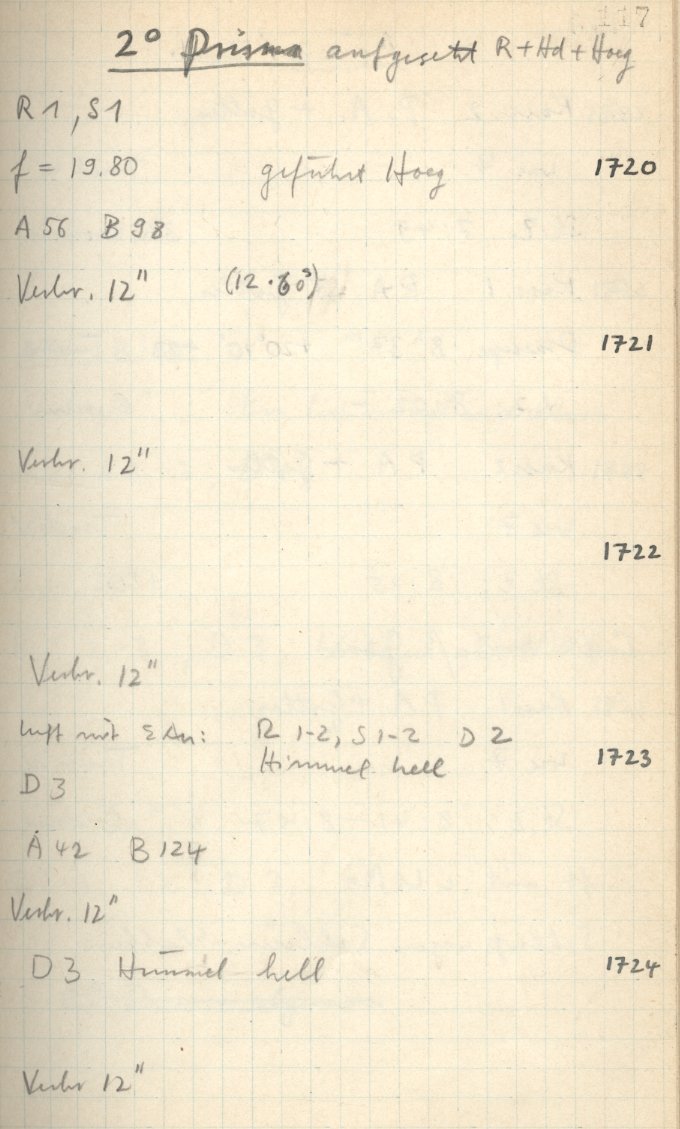 117
2° Prisma aufgesetzt R+Hd+Hoeg
R1, S1
f = 19.80 geführt Hoeg 1720
A 56 B 98
Verbr. 12" (12·60ˢ)
1721
Verbr. 12"
1722
Verbr. 12"
Luft mit R 1-2, S 1-2 D 2
Himmel hell 1723
D 3
A 42 B 124
Verbr. 12"
D3 Himmel hell 1724
Verbr 12"